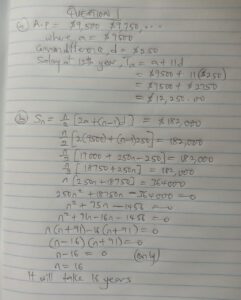 QUESTION 1
(a) A.P = $9,500, $9,750, ...
where, a = $9500
Common difference, d = $250
Salary at 12th year, T₁₂ = a + 11d
= $9500 + 11($250)
= $9500 + $2750
= $12,250.00
(b) Sn = n/2 [2a + (n-1)d] = $182,000
n/2 [2(9500) + (n-1)250] = 182,000
n/2 [19000 + 250n - 250] = 182,000
n/2 [18750 + 250n] = 182,000
n(250n + 18750) = 364000
250n² + 18750n - 364000 = 0
n² + 75n - 1456 = 0
n² + 91n - 16n - 1456 = 0
n(n+91) - 16(n+91) = 0
(n-16)(n+91) = 0
n - 16 = 0 (only)
n = 16
It will take 16 years